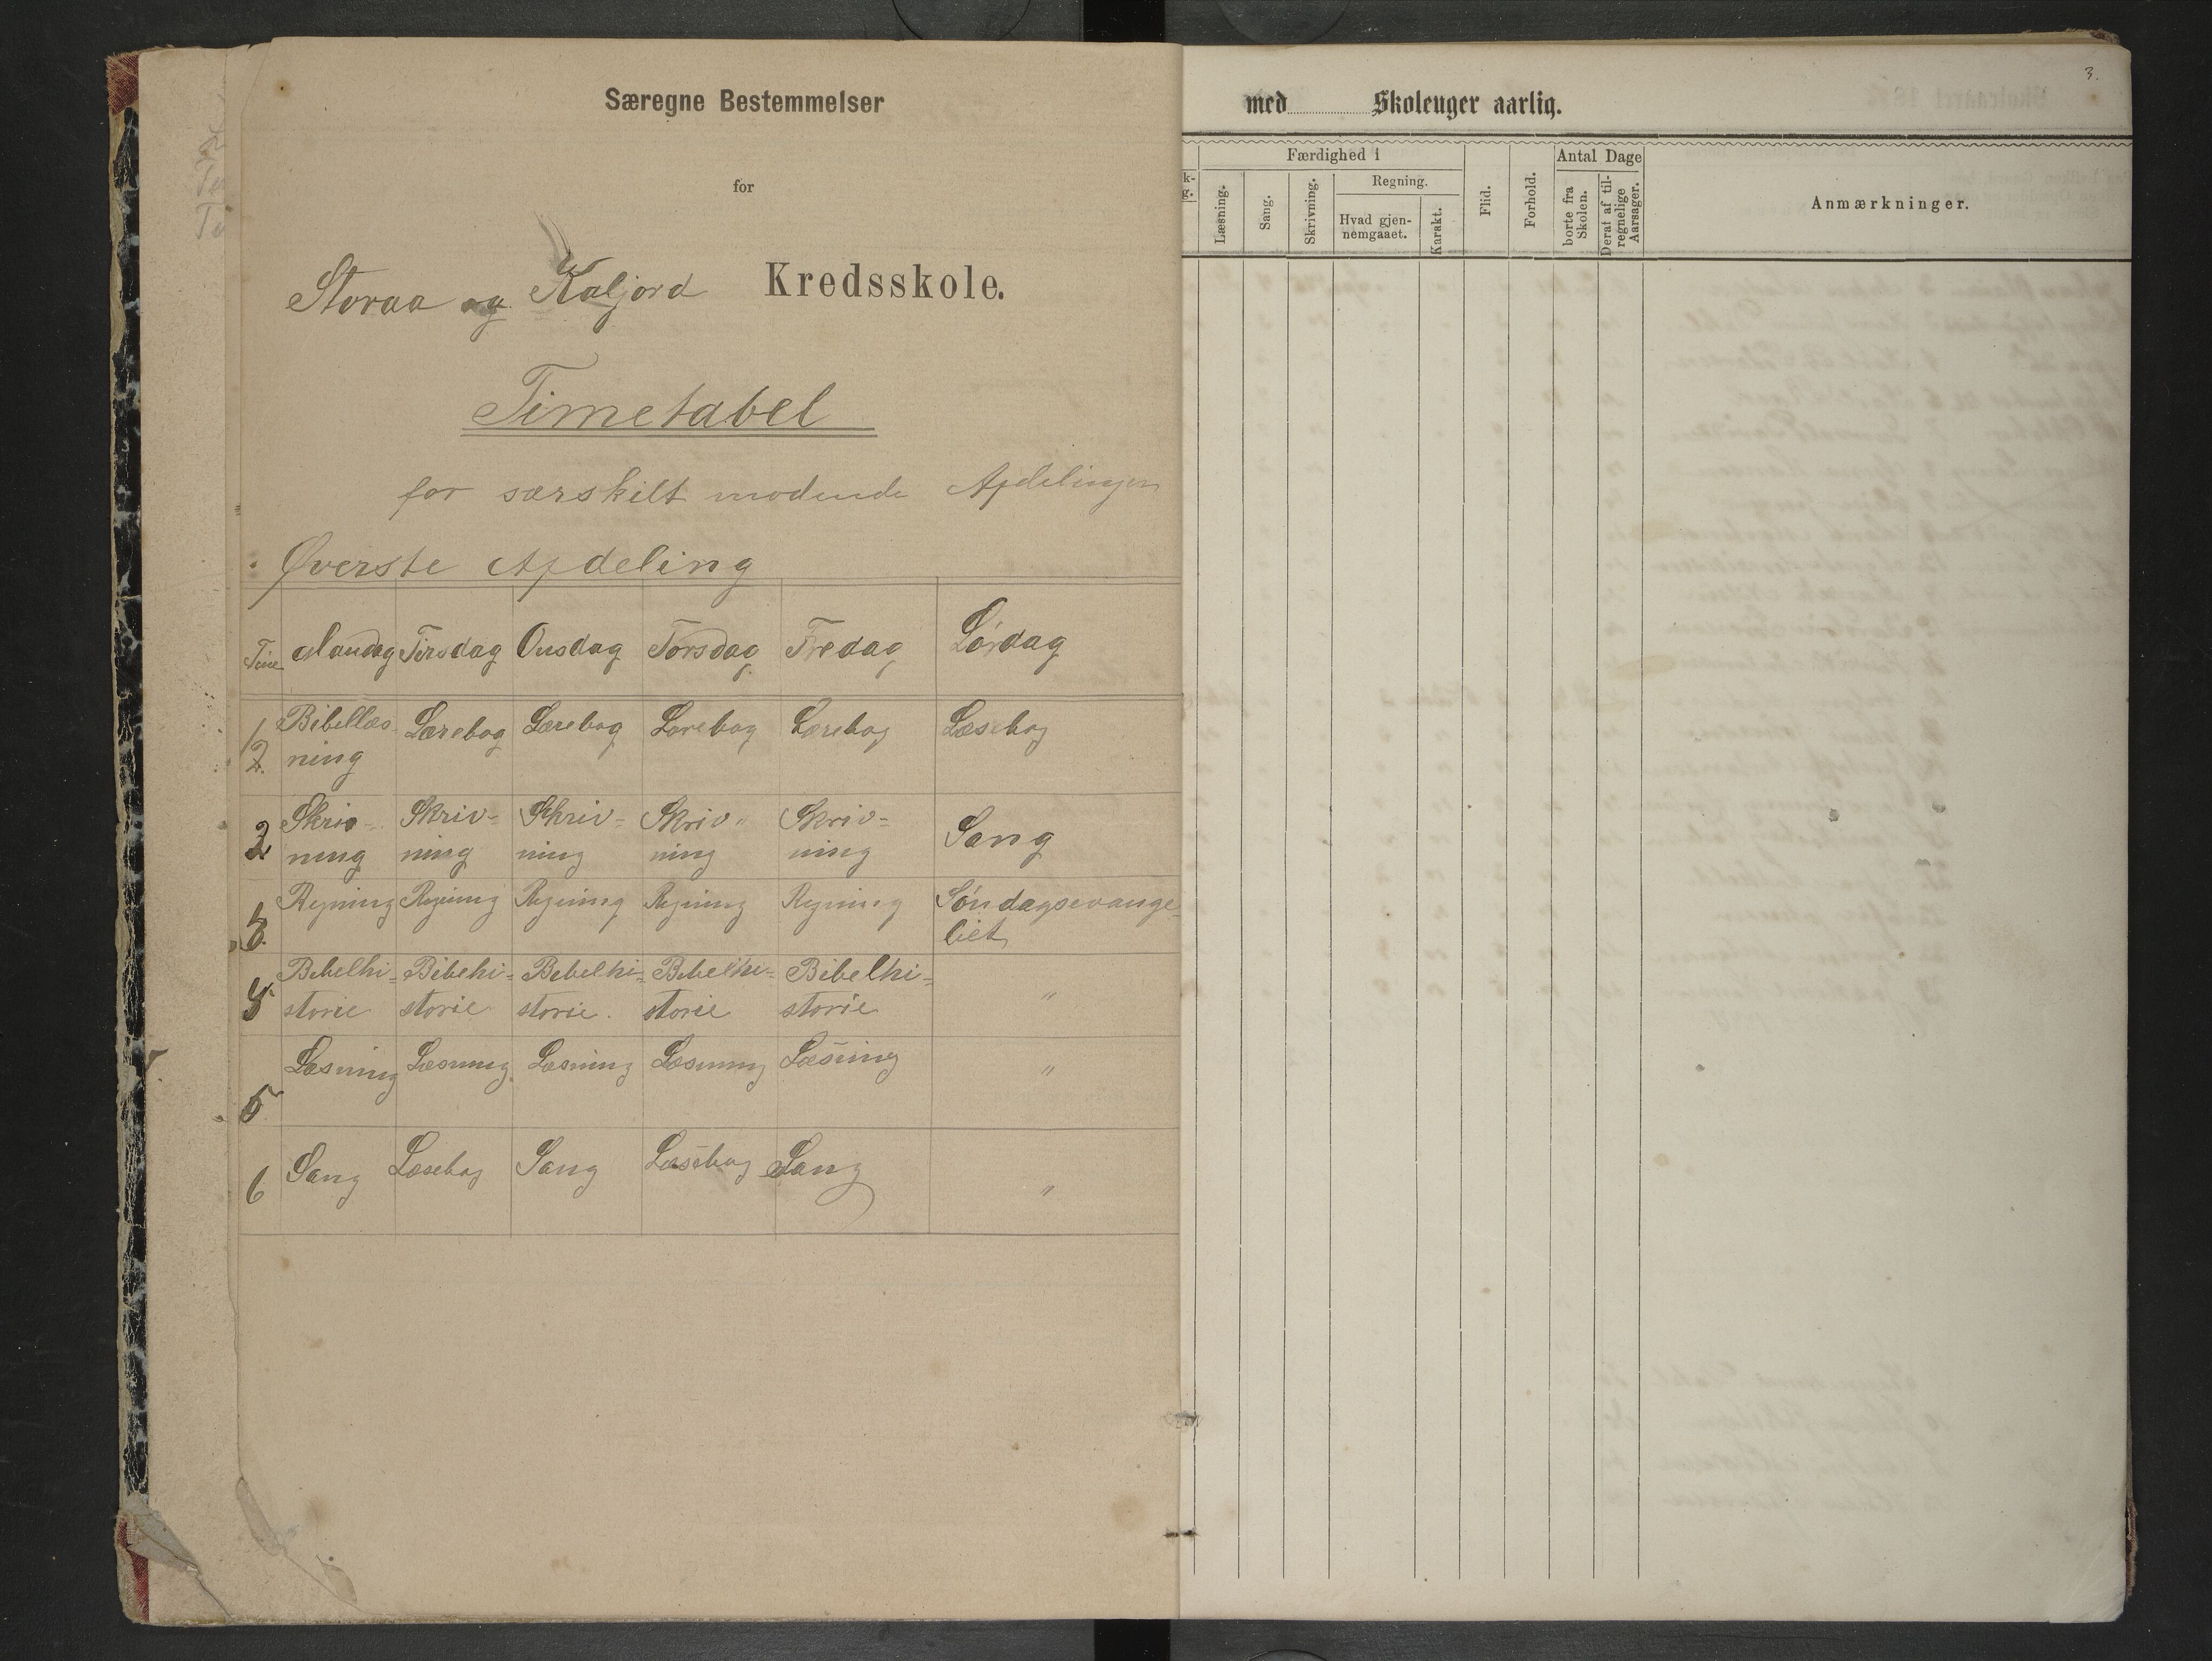 Særegne Bestemmelser
for
Storaa og Kaljord Kredsskole.
Timetabel
for særskilt mødende Afdelinger
Øverste Afdeling
Time Mandag Tirsdag Onsdag Torsdag Fredag Lørdag
Bibellæs- Lærebog Lærebog Lærebog Lærebog Læsebog
ning
Skriv- Skriv= Skriv= Skriv= Skriv=
2 ning ning ning ning ning Sang
Regning Regning Regning Regning Regning Søndagsevange-
3. liet
Bibelhi= Bibehi= Bibelhi= Bibelhi= Bibelhi=
4 storie storie storie. storie storie "
Læsning Læsning Læsning Læsning Læsning "
5
6 Sang Læsebog Sang Læsebog Sang "
3.
med Skoleuger aarlig.
Færdighed i
Antal Dage
k-
g.
Læsning.
Sang.
Skrivning.
Regning.
Hvad gjen-
nemgaaet.
Karakt.
Flid.
Forhold.
borte fra
Skolen.
Deraf af til-
regnelige
Aarsager.
Anmærkninger.